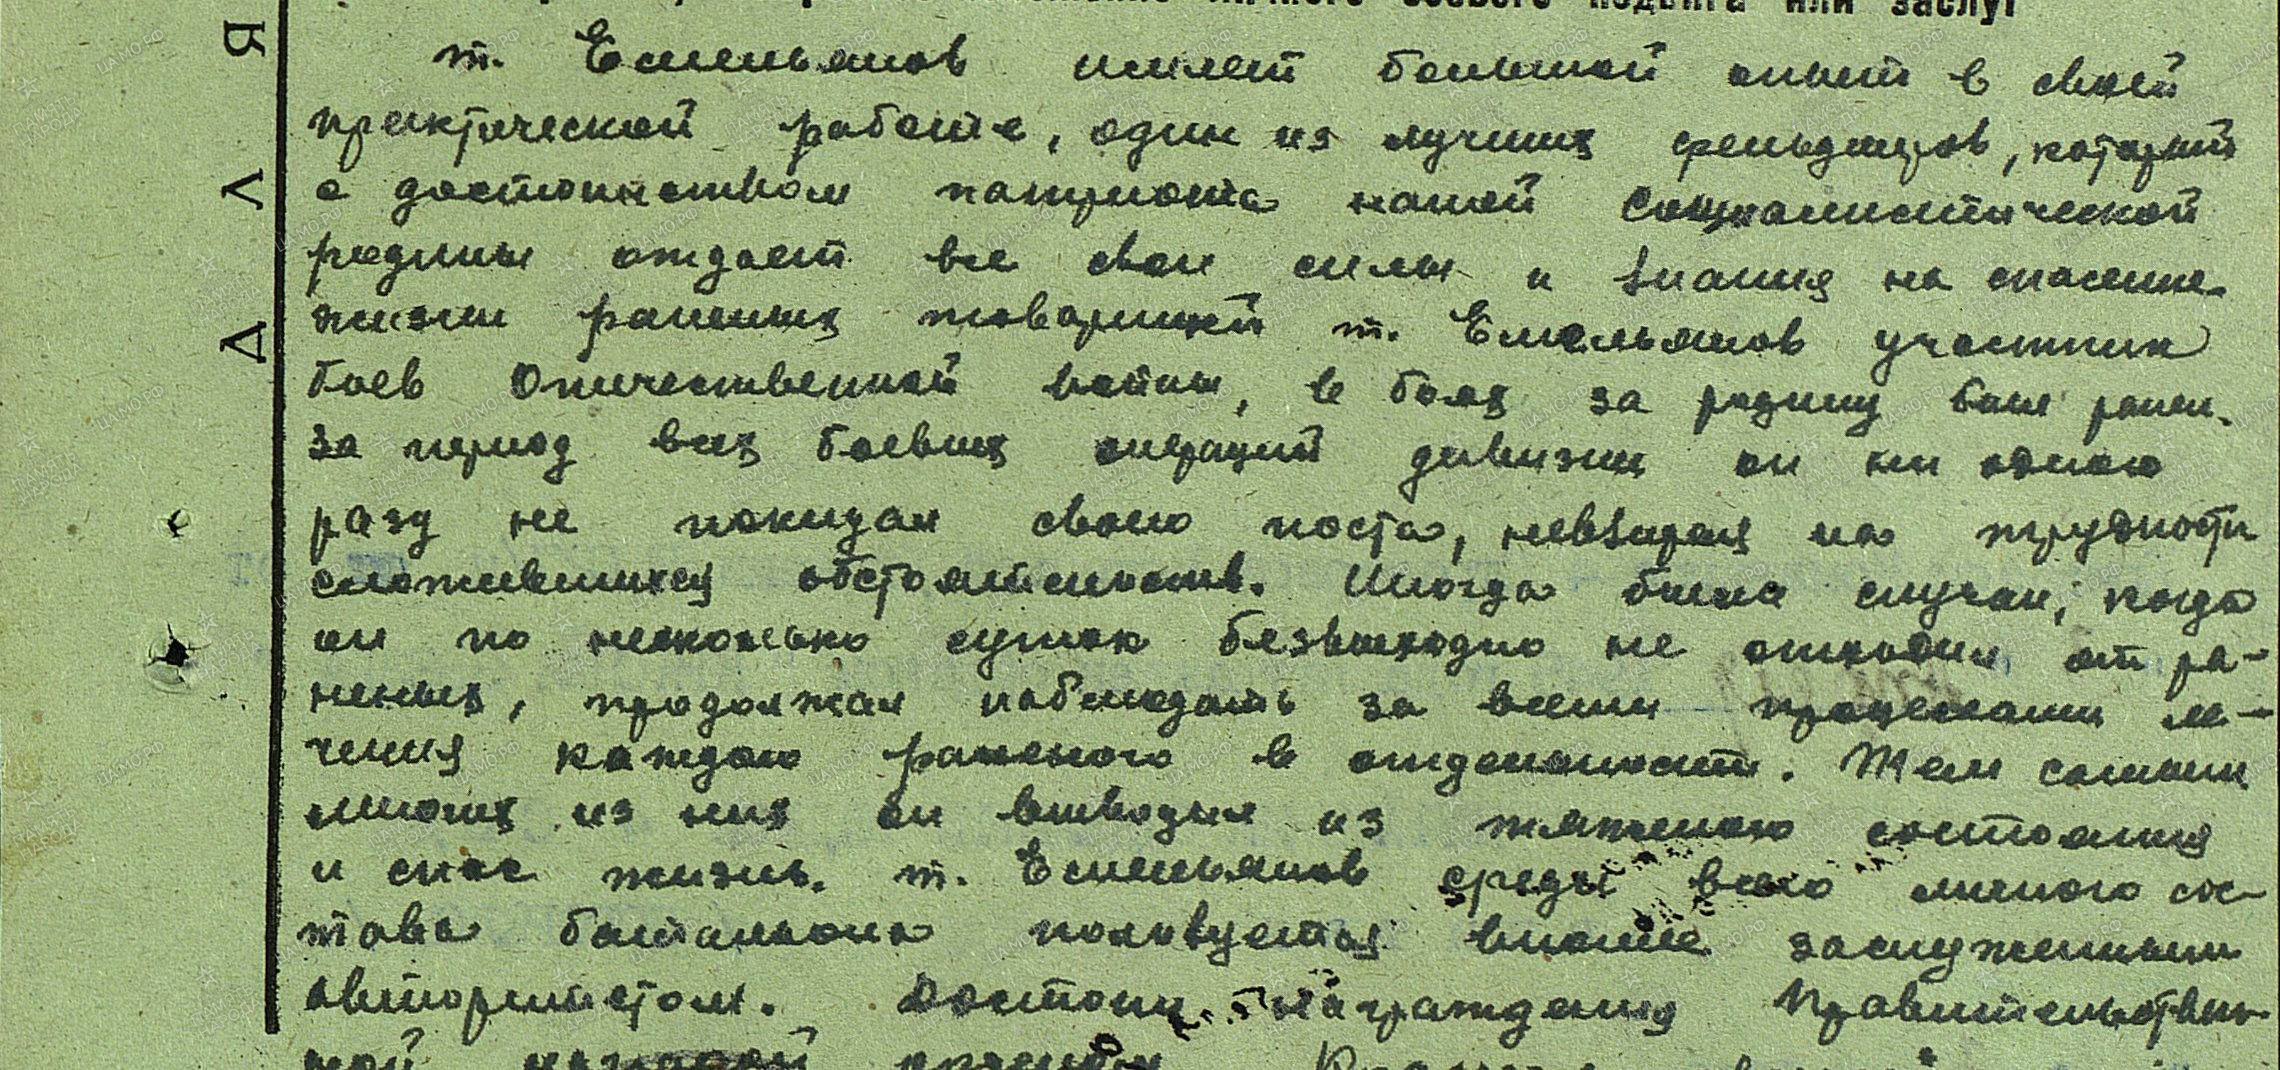 личного боевого подвига или заслуг
т. Емельянов имеет большой опыт в своей
практической работе, один из лучших фельдшеров, который
с достоинством патриота нашей социалистической
родины отдает все свои силы и знания на спасение
жизни раненых товарищей т. Емельянов участник
боев Отечественной войны, в боях за родину был ранен.
За период всех боевых операций дивизии он ни одного
разу не покидал своего поста, невзирая на трудности
сложившихся обстоятельств. Иногда были случаи, когда
он по несколько суток безвыходно не отходил от ра-
неных, продолжал наблюдать за всеми процессами ле-
чения каждого раненого в отдельности. Тем самым
многих из них он выводил из тяжелого состояния
и спас жизнь. т. Емельянов среди всего личного сос-
тава батальона пользуется вполне заслуженным
авторитетом. Достоин награждения Правительствен-
ной наградой орденом
ДЛЯ